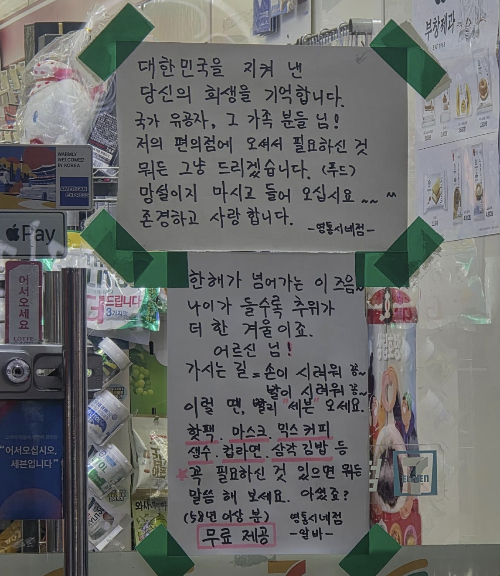 대한민국을 지켜 낸
당신의 희생을 기억합니다.
국가 유공자, 그 가족 분들 님!
저의 편의점에 오셔서 필요하신 것
뭐든 그냥 드리겠습니다. (푸드)
망설이지 마시고 들어 오십시요 ~~ ^^
존경하고 사랑합니다.
-영통시네점-
한해가 넘어가는 이즈음~
나이가 들수록 추위가
더 한 겨울이죠.
어르신 님!
가시는 길 = 손이 시려워 꽁~
발이 시려워 꽁~
이럴 땐, 빨리 "세븐" 오세요.
핫팩. 마스크. 믹스 커피
생수. 컵라면. 삼각 김밥 등
★ 꼭 필요하신 것 있으면 뭐든
말씀 해 보세요. 아셨죠?
(58년 이상 분) 영통시네점
무료 제공 -알바-
WARMLY
WELCOMED
IN KOREA
AMERICAN
EXPRESS
Pay
어서오세요
LOTTE
드립니다
"어서오십시오,
세븐입니다"
부창제과